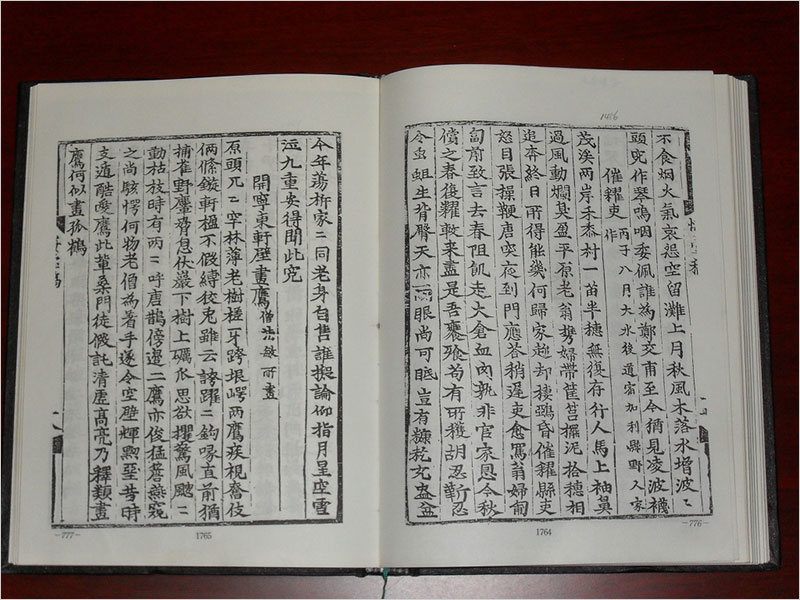 1466
不食烟火氣哀怨空留灘上月秋風木落水增波〻
頭究作琴嗚咽委佩誰為鄭交甫至今猶見凌波襪
催糴吏 丙子八月大水後道宿加利縣野人家作
茂溪两岸禾黍村一首半穗無復存行人馬上袖鼻
過風動爛臭盈平原老翁携婦帶筐筥擢泥拾穗相
追奔終日所得能幾何歸家趂却棲鴉昏催糴縣吏
怒目張操鞭唐突夜到門應荅稍遅吏愈罵翁婦匍
匐前致言去春阻飢走大倉血肉孰非官家恩今秋
償之春復糴敢來盡是吾饔飱苟有所獲胡忍靳忍
令虫蛆生背臀天亦有眼尚可眡豈有糠乾充盎盆
-776-
1764
今年蕩析家〻同老身自售誰擬論仰指月星空雪
泣九重安得聞此寃
開寧東軒壁畫鷹 僧法敏所畫
原頭兀〻空林薄老樹槎牙跨垠崿两鷹疾視奮伎
俩絛鏇軒楹不假縛狡兎雖云誇躍〻鉤喙直前猶
捕雀野麞脅息伏巖下樹上礪爪思欲攫驚風颼〻
動枯枝時有两〻呼唐鵲傍邉二鷹亦俊猛菩燕窺
之尚駭愕何物老僧為著手遂令空壁輝黝堊昔時
支遁酷愛鷹此輩桑門徒假託清虚高亮乃釋類畫
鷹何似畫孤鶴
-777-
1765